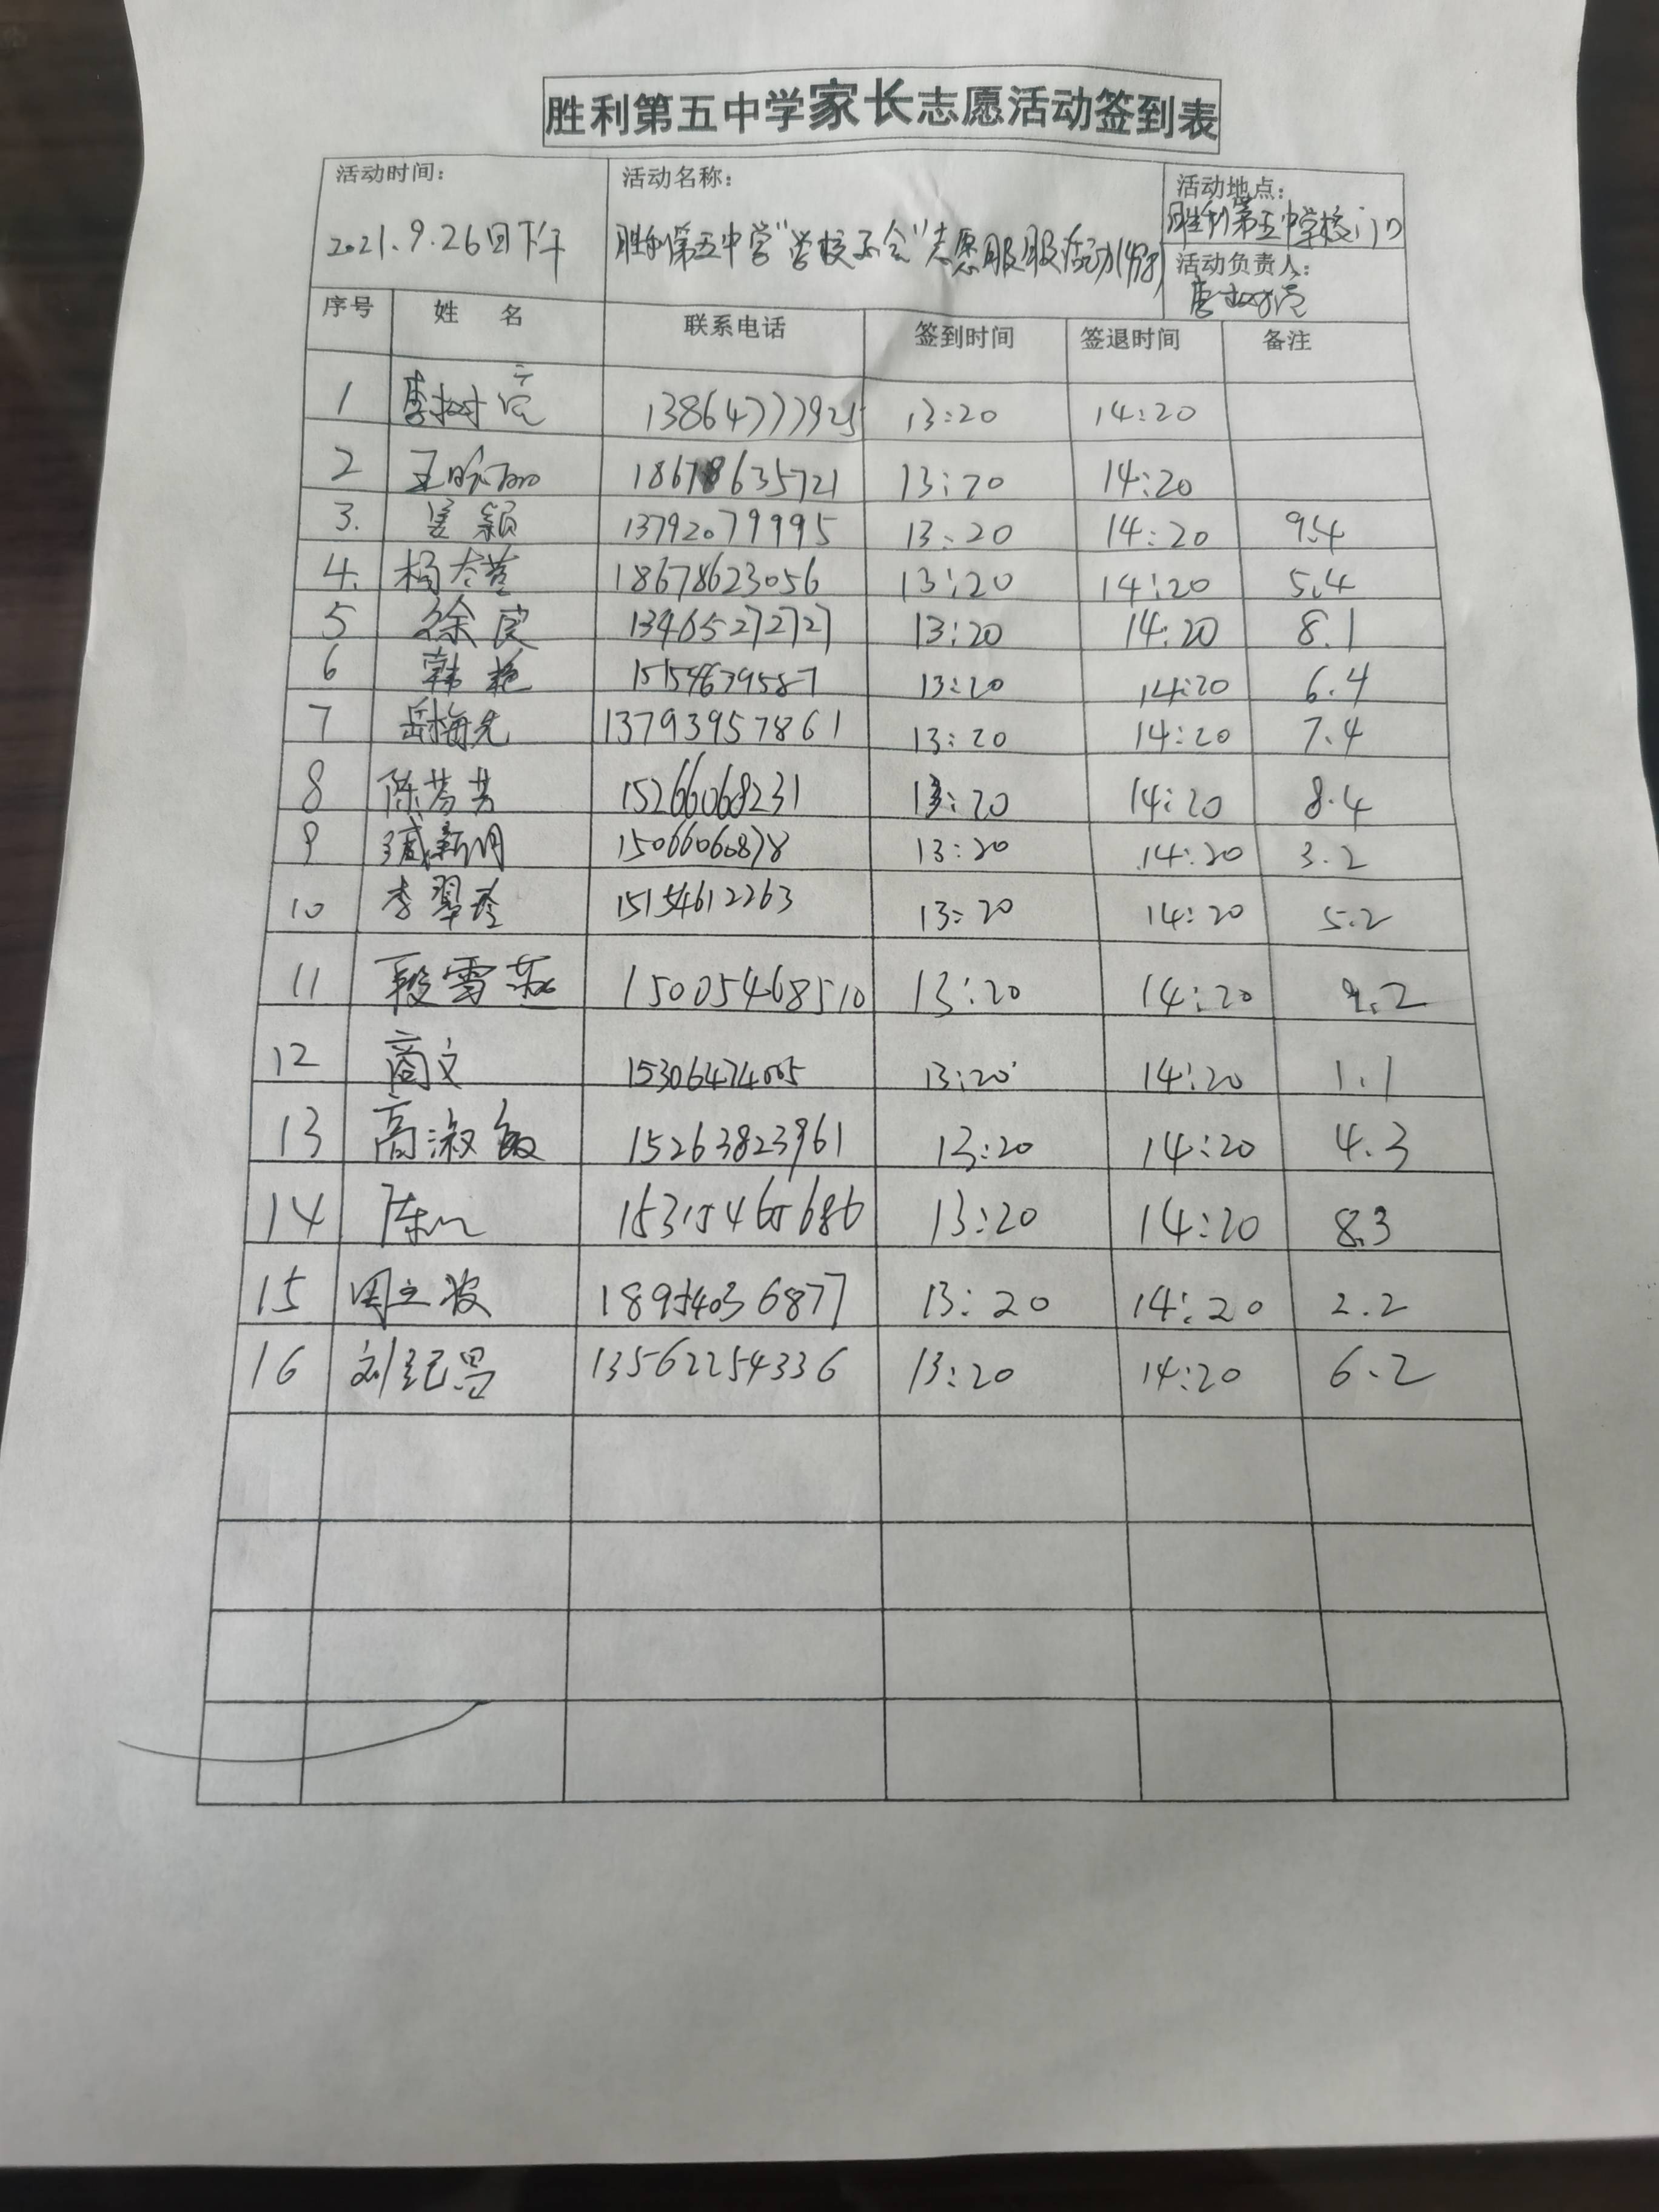 胜利第五中学家长志愿活动签到表
活动时间：
2021.9.26日下午
活动名称：
胜利第五中学"学校不会"志愿服服活动
活动地点：
胜利第五中学校门口
活动负责人：
序号 姓 名 联系电话 签到时间 签退时间 备注
1 树亮 13864777925 13:20 14:20
2 王 18678635721 13:20 14:20
3. 姜颖 13792079995 13:20 14:20 9.4
4. 杨 18678623056 13:20 14:20 5.4
5 徐良 13465272727 13:20 14:20 8.1
6 韩艳 15154639587 13:20 14:20 6.4
7 岳梅先 13793957861 13:20 14:20 7.4
8 陈芳芳 15266068231 13:20 14:20 8.4
9 15066060878 13:20 14:20 3.2
10 李翠玲 15154612263 13:20 14:20 5.2
11 段雪燕 15005468510 13:20 14:20 9.2
12 商文 15306474005 13:20 14:20 1.1
13 高淑敏 15263823961 13:20 14:20 4.3
14 陈 15315465686 13:20 14:20 8.3
15 周立波 18954036877 13:20 14:20 2.2
16 刘纪昌 13562254336 13:20 14:20 6.2